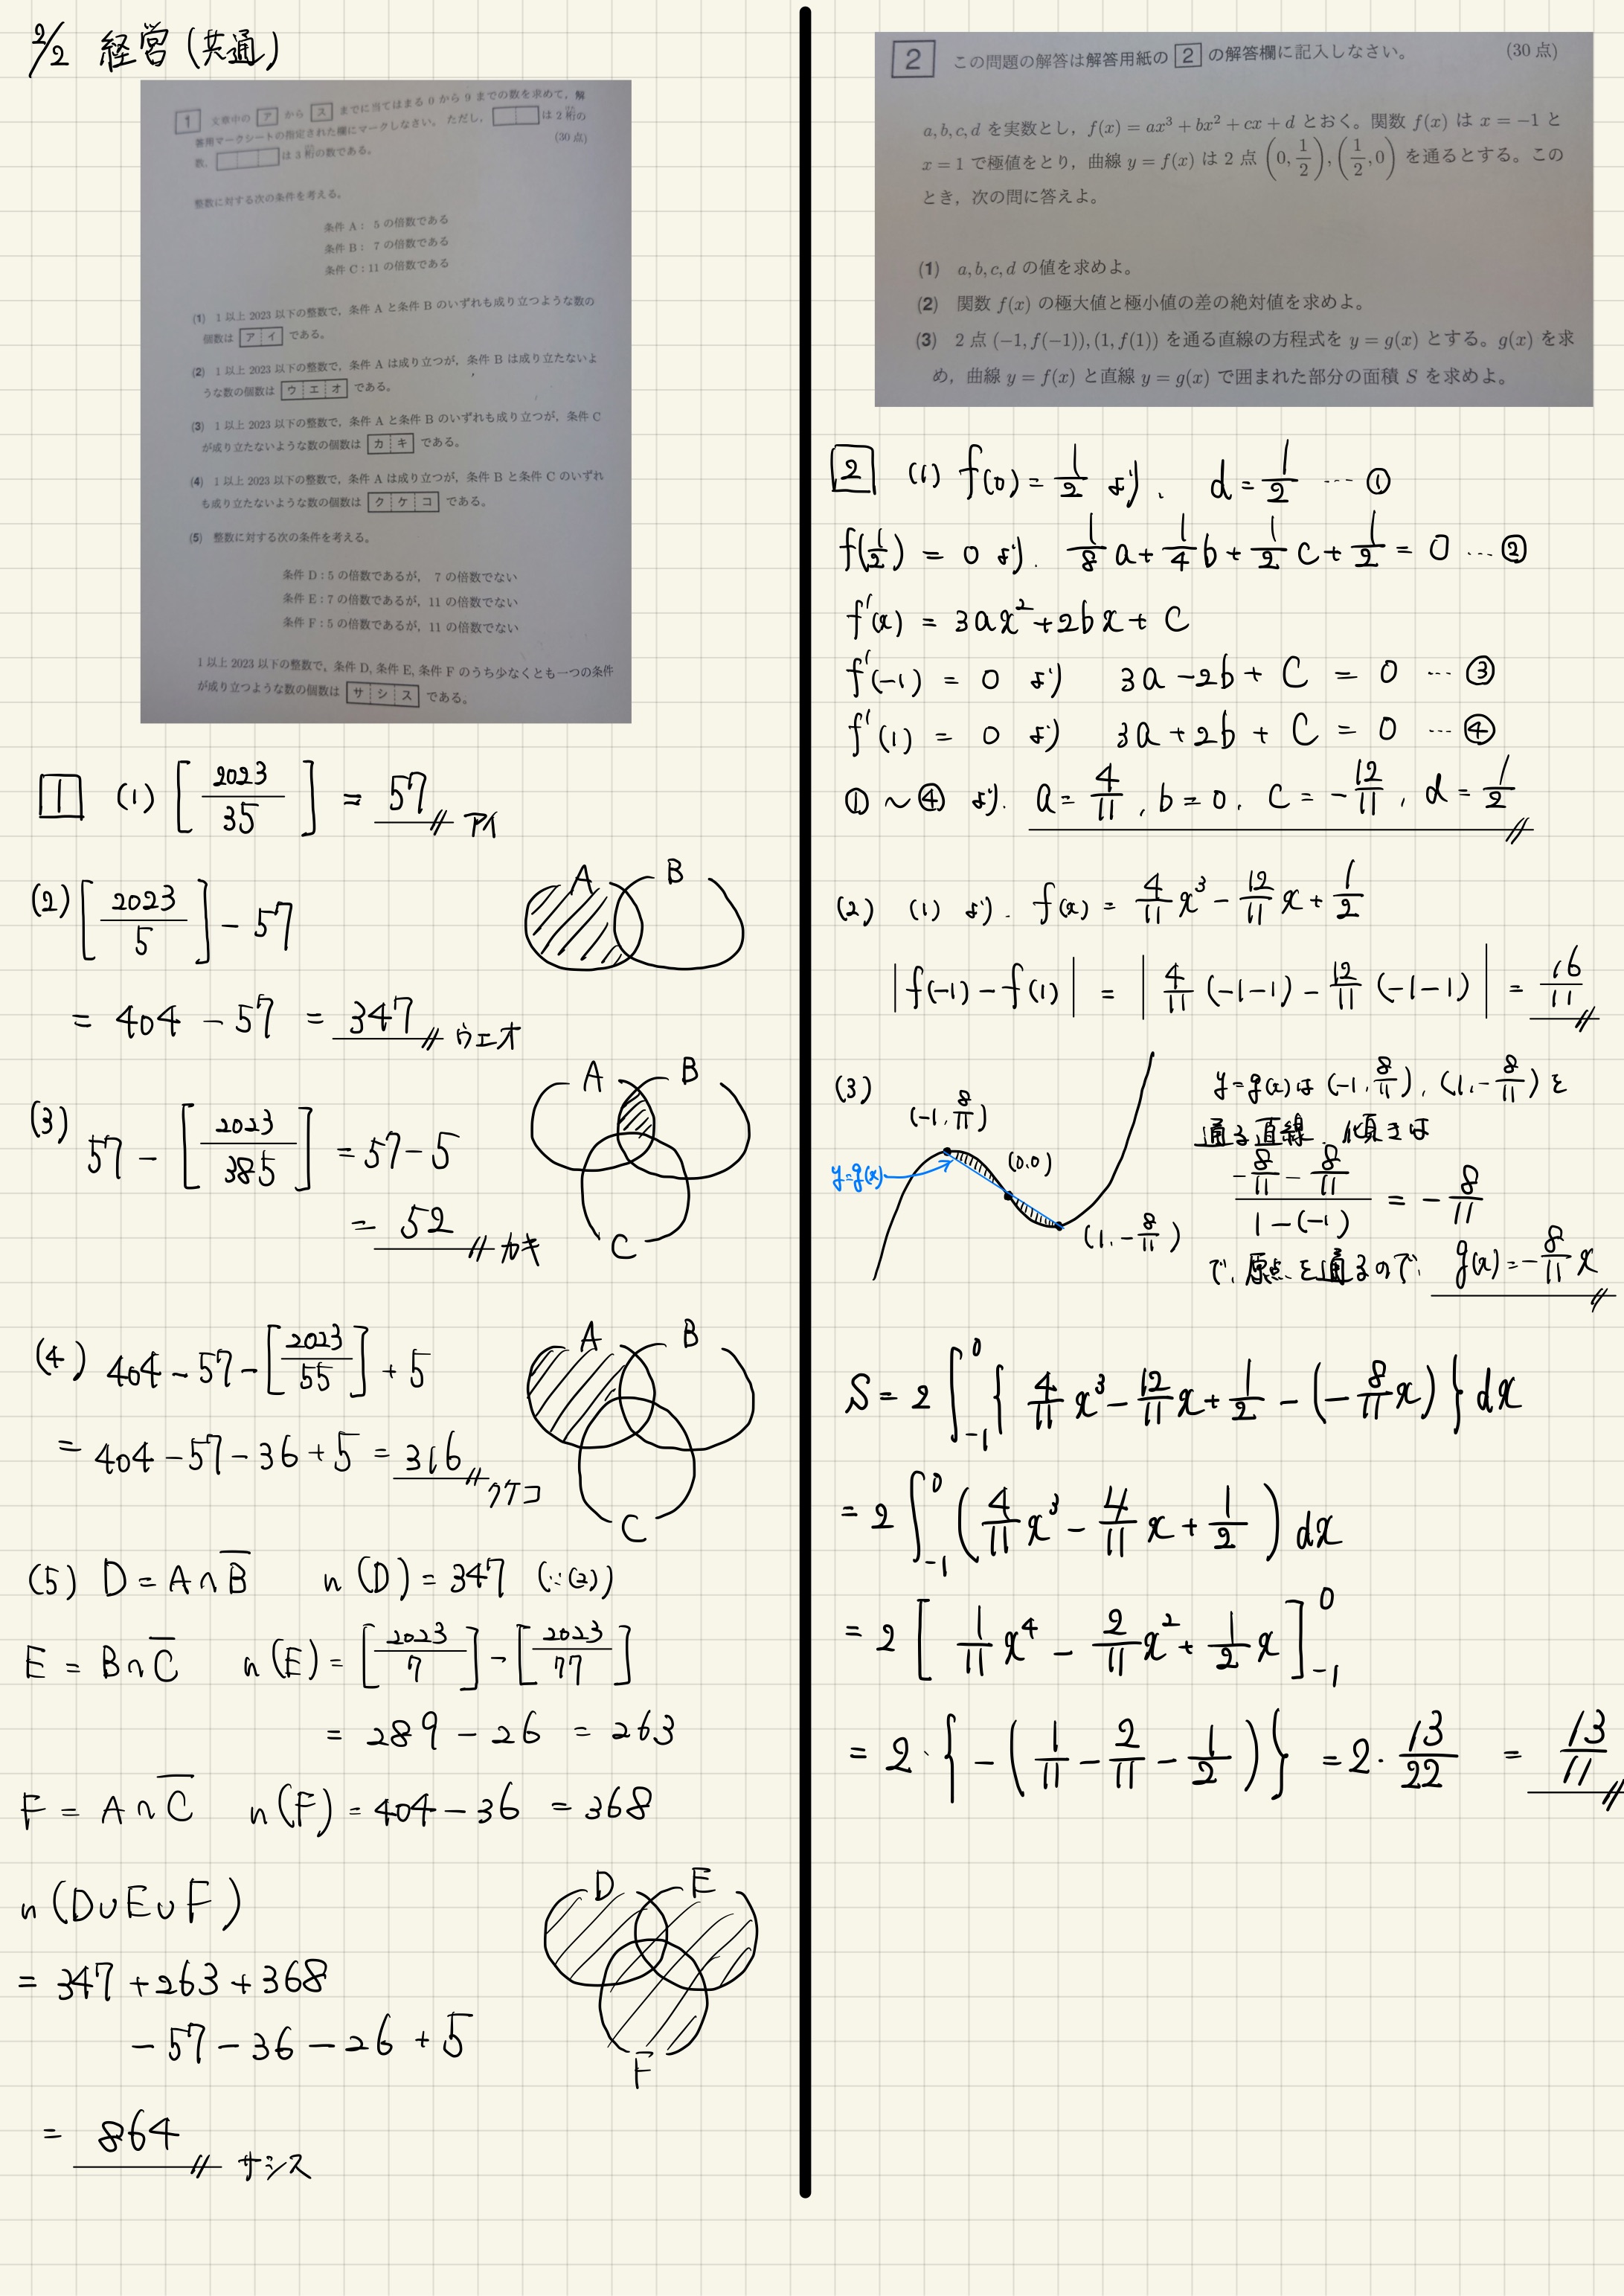 2/2 経営(共通)
1 文章中の ア から ス までに当てはまる 0 から 9 までの数を求めて，解
答用マークシートの指定された欄にマークしなさい。ただし， は 2 桁の
数， は 3 桁の数である。 (30 点)
整数に対する次の条件を考える。
条件 A： 5 の倍数である
条件 B： 7 の倍数である
条件 C：11 の倍数である
(1) 1 以上 2023 以下の整数で，条件 A と条件 B のいずれも成り立つような数の
個数は アイ である。
(2) 1 以上 2023 以下の整数で，条件 A は成り立つが，条件 B は成り立たないよ
うな数の個数は ウエオ である。
(3) 1 以上 2023 以下の整数で，条件 A と条件 B のいずれも成り立つが，条件 C
が成り立たないような数の個数は カキ である。
(4) 1 以上 2023 以下の整数で，条件 A は成り立つが，条件 B と条件 C のいずれ
も成り立たないような数の個数は クケコ である。
(5) 整数に対する次の条件を考える。
条件 D：5 の倍数であるが， 7 の倍数でない
条件 E：7 の倍数であるが，11 の倍数でない
条件 F：5 の倍数であるが，11 の倍数でない
1 以上 2023 以下の整数で，条件 D, 条件 E, 条件 F のうち少なくとも一つの条件
が成り立つような数の個数は サシス である。
1 (1) [2023/35] = 57 アイ
(2) [2023/5] - 57
A B
= 404 - 57 = 347 ウエオ
(3) 57 - [2023/385] = 57 - 5
A B
C
= 52 カキ
(4) 404 - 57 - [2023/55] + 5
A B
C
= 404 - 57 - 36 + 5 = 316 クケコ
(5) D = A∩B̅ n(D) = 347 (∵(2))
E = B∩C̅ n(E) = [2023/7] - [2023/77]
= 289 - 26 = 263
F = A∩C̅ n(F) = 404 - 36 = 368
n(D∪E∪F)
D E
F
= 347 + 263 + 368
- 57 - 36 - 26 + 5
= 864 サシス
2 この問題の解答は解答用紙の 2 の解答欄に記入しなさい。 (30 点)
a, b, c, d を実数とし，f(x) = ax³ + bx² + cx + d とおく。関数 f(x) は x = −1 と
x = 1 で極値をとり，曲線 y = f(x) は 2 点 (0, 1/2), (1/2, 0) を通るとする。この
とき，次の問に答えよ。
(1) a, b, c, d の値を求めよ。
(2) 関数 f(x) の極大値と極小値の差の絶対値を求めよ。
(3) 2 点 (−1, f(−1)), (1, f(1)) を通る直線の方程式を y = g(x) とする。g(x) を求
め，曲線 y = f(x) と直線 y = g(x) で囲まれた部分の面積 S を求めよ。
2 (1) f(0) = 1/2 より、 d = 1/2 … ①
f(1/2) = 0 より、 1/8 a + 1/4 b + 1/2 c + 1/2 = 0 … ②
f'(x) = 3ax² + 2bx + c
f'(-1) = 0 より 3a - 2b + c = 0 … ③
f'(1) = 0 より 3a + 2b + c = 0 … ④
① ~ ④ より、 a = 4/11, b = 0, c = -12/11, d = 1/2
(2) (1) より、 f(x) = 4/11 x³ - 12/11 x + 1/2
|f(-1) - f(1)| = |4/11 (-1-1) - 12/11 (-1-1)| = 16/11
(3)
(-1, 8/11)
y=g(x)
(0,0)
(1, -8/11)
y=g(x) は (-1, 8/11), (1, -8/11) を
通る直線、傾きは
(-8/11 - 8/11)/(1-(-1)) = -8/11
で、原点を通るので、 g(x) = -8/11 x
S = 2 ∫_{-1}^{0} { 4/11 x³ - 12/11 x + 1/2 - (-8/11 x) } dx
= 2 ∫_{-1}^{0} ( 4/11 x³ - 4/11 x + 1/2 ) dx
= 2 [ 1/11 x⁴ - 2/11 x² + 1/2 x ]_{-1}^{0}
= 2 · { -( 1/11 - 2/11 - 1/2 ) } = 2 · 13/22 = 13/11